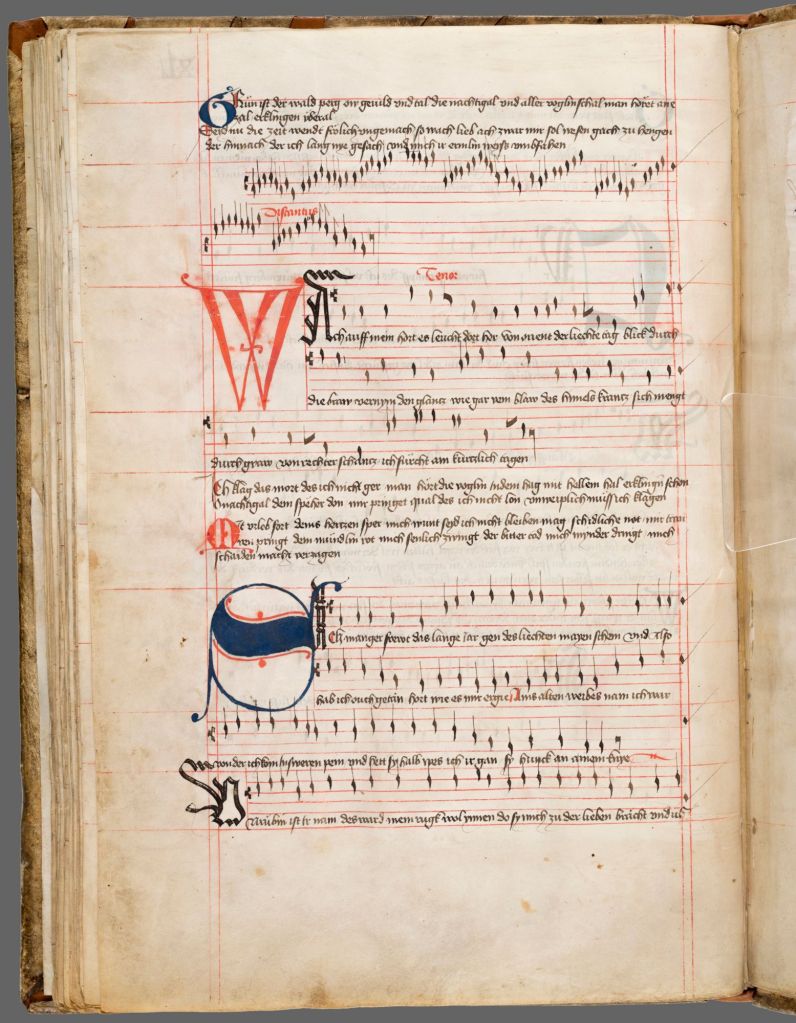 Grün ist der wald perg ow geuild vnd tal die nachtigal vnd aller voglin schal man höret ane
zal erklingen vberal
Seid nu die zeit wendt frölich vngemach so wach lieb ach zwar mir sol wesen gach zu hengen
der hinnach der ich lang nye gesach vnd mich ir ermlin weiss vmbfahen
Discantus
Tenor
WAch auff mein hort es leucht dort her von orient der liechte tag blick durch
die braw vernym den glantz wie gar vein blaw des himels krantz sich mengt
durch graw von rechter schantz ich fürcht ain kurtzlich tagen
Ich klag das mort des ich nicht ger man hört die voglin in dem hag mit hellem hal erklingn schon
O nachtigal dem speher don mir pringet qual des ich nicht lon vnweiplich muss ich klagen
Mit vrlob fort deins hertzen sper mich wunt seyd ich nicht bleiben mag schidliche not mir traw
ren pringt dein mündlin rot mich senlich zwingt der bitter tod mich mynder dringt mich
schaiden macht verzagen
Ich manger frewt das lange Iar gen des liechten mayen schein vnd also
hab ich ouch getan hort wie es mir ergie Ains alten weibes nam ich war
wonder ich kom zu sweren pein vnd hett sy halb ypes ich ir gan sy hinck an ainem knye
Nachin ist ir nam des ward mein rugk wol ynnen do sy mich zu der lieben bracht vnd ich